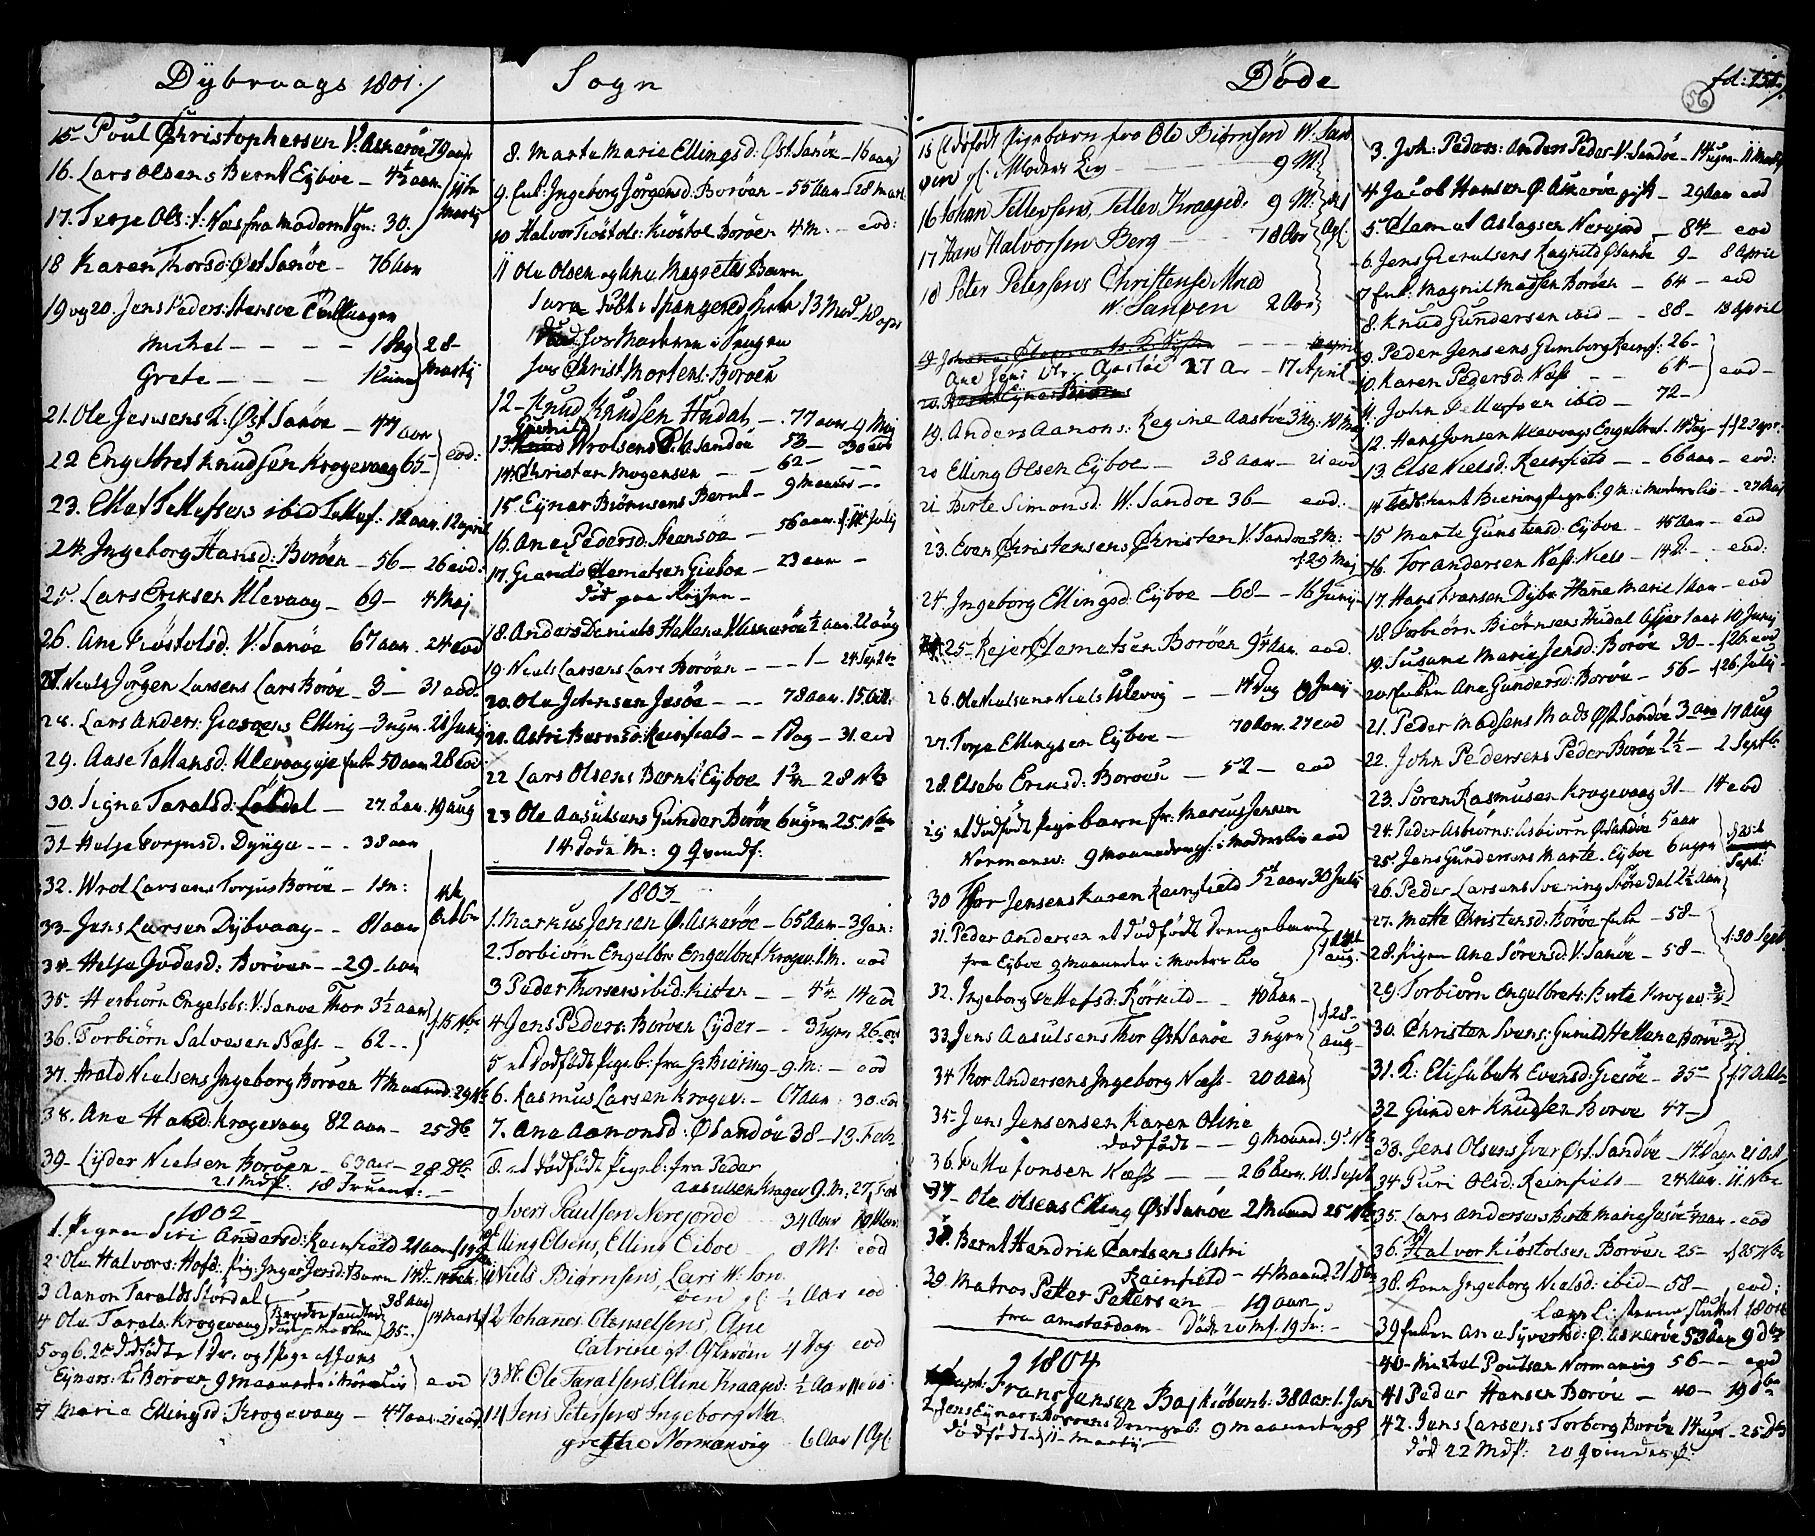 Dybvaags 1801
Sogn
Döde
fol: 151
56
15 Poul Christophersen V: Askerøe 79 aar
16. Lars Olsens Bernt Eyboe - 4½ aar
17. Terje Ols: f: Næs fra Madom 30.
18 Karen Thorsd: Øst Sanøe - 76 aar
19 og 20. Jens Peders: Stensoe Tvillinger
Michel - - - 1 Dag
Grete - - - 1
28 Martij
21. Ole Jensens Øst Sanøe - 47 aar
22 Engelbret Knudsen Krogevaag 65 - eod:
23. Ellef Tellefsens ibid Tellef: 12 aar. 12 april
24. Ingeborg Hansd: Borøen - 56 - 26 eod:
25. Lars Eriksen Klevaag - 69 - 4 Maj
26. Ane Kiøstolsd: V. Sanøe 67 aar. 24 eod
27. Niels Jørgen Larsens Lars Borøe - 3 - 31 eod.
28. Lars Anders: Giesøens Elling - 3 ugr. 21 Junij
29. Aase Tallaksd: Klevaag enke 50 aar 28 eod
30. Signe Taralsd: Løvdal - 27 aar. 19 aug
31 Helje Torjusd: Dynge - - - 38 aar
32. Wrol Larsens Torjus Borøe - 1 M:
33. Jens Larsen Dybvaag - - 81 aar
34. Helje Jodesd: Borøen - - 29 - aar
35. Herbiørn Engelbs: V: Sanøe Thor 3½ aar
36. Torbiörn Salvesen Næss - 62 - -
37. Arald Nielsens Ingeborg Borøen 4 Maaned. 29
38. Ane Hansd: Krogevaag 82 aar - 25 Db
39 - Lyder Nielsen Borøen - 63 aar - 28 Db:
21 Mdk: 18 Fruent: -
1802
1. Pigen Siri Andersd: Reinfield 21 aar
2. Ole Halvors: Hofd: Pig: Inger Jersd: Barn 14 d - 14 Feb.
3 Aanon Taralds Stordal 38 aar
4 Ole Tarals: Krogevaag 35 - 14 Martij
5 og 6. 2de dødfødte 1 Dr. og 1 Pige af Jens
Eynars: Borøen 9 maaneder i Moders liv eod
7 Maria Ellingsd. Krogevaag - 47 aar - 21 eod
8. Marte Marie Ellingsd: Øst Sanøe - 16 aar
9. Enk: Ingeborg Jörgensd. Borøen - 55 aar - 28 Mart
10 Halvor Kiøstols: Kiøstol Borøen 4 M: - eod:
11 Ole Olsen og Ane Magrethe Barn
Sara født i Spangereid 13 Md. 18 apr
hos Christ Mortens: Borøen
12 - Knud Knudsen Hødal, - 77 aar 4 Maj
13. Wrolsens Sandøe 53 - 30 eod
14. Christen Mogensen - - 62 - - -
15. Eynar Biörnsens Bernt - 9 Maaned - -
16. Ane Pedersd: Steensøe - 56 aar. 11 Julij
17. Gierulf Clemetsen Giesøe - 23 aar -
död paa Rejsen -
18. Anders Daniels Hellene V. Askerøe ½ aar. 22 aug
19 Niels Larsens Lars Borøen - - - 1 - 24 Septbr
20. Ole Johnsen Jesöe - - - 78 aar. 15 Octb:
21. Astri Berns: Reinfield - - 1 Dag - 31. eod
22 Lars Olsens Bernt Eyboe 1 M - 28 Nb
23 Ole Aasulsens Gunder Borøe 6 ugr 25 Nbr
14 døde M: 9 Qvindf:
1803
1. Markus Jensen Ø: Askerøe - 65 aar - 3 Jan:
2. Torbiörn Engelbr: Engelbret Krogev. 1 M. eod
3 Peder Thorsens ibid: Kisten - - 14 eod
4 Jens Peders: Borøen Lyder - - 3 ugr 26 eod
5 et Dødfødt Pigeb: fra Biering 9 M: - eod
6. Rasmus Larsen Krogev: - 67 aar: 30 eod
7. Ane Aanonsd: Ø Sandøe 38 - 13. Feb
8. et dødfødt Pigeb: fra Peder
Aasulsen Krogev 9. M: 27 Feb
9 Ivers Paulsen Nerejorde 34 Aar
10 Elling Olsens, Elling Eiboe 8 M: eod
11 Niels Biørnsens, Lars W: San
øen ½ Aar eod
12 Johanes Clemetsens, Ane
Catrine Askerøen 4 Dag eod
13 Ole Taralsens, Eline Kraagd: ½ Aar 11 eod
14 Jens Petersens Ingeborg Ma
grethe Normanvig 6 Aar 1 Apl
15 Et dødfødt Pigebarn fra Ole Biørnsen W: Sand
øen i Moders Liv - - 9 M:
16 Johan Tellevsens, Tellev Kraaged: 9 M:
17 Hans Halvorsen Berg - - 78 Aar
18 Peter Petersens Christense Mad
W: Sanøen 2 Aar
Ane Jens Dtr. Gjestøe 27 Ar - 17 April
19. Anders Aanons: Regine Aastøe 3 Ug: 10 Maj
20 Elling Olsen Eyboe - 38 aar - 21 eod
21 Berte Simonsd: W: Sandøe 36 - eod:
23. Even Christensens Christen V. Sandøe 3 M:
29 Maj
24. Ingeborg Ellingsd: Eyboe - 68 - - 16 Junij
25 - Rejer Clemetsen Borøen 9½ aar. eod.
26. Ole Nielsens Niels Klevvig - - 14 Dag 19 Junij
27. Torje Ellingsen Eyboe - 70 aar. 27 eod
28. Elsebe Erensd: Borøen - 52 - eod
29 et dødfødt Pigebarn fr: Marcus Jensen
Normanv. 9 maaneder i Moders liv eod
30 Thor Jensens Karen Reinfield 5½ aar 30 Julij
31. Peder Andersen et dødfødt Drengebarn
fra Eyboe 9 maaneder i Moders liv
aug.
32. Ingeborg Tellefsd: Rørkild - - 40 aar -
33. Jens Aasulsens Thor Øst Sanøe 3 ugr
28 - Aug -
34 Thor Andersens Ingeborg Næss - 20 aar
35. Jens Jensensen Karen Oline
dødfødt - - 9 Maaned. 9 Nb
36. Jonsen Næss - - 26 aar. 10 Sept
37 - Ole Olsens Elling Øst Sanøe 2 Maaned 25 Nb
38. Bernt Hendrik Carlsens Astri
Reinfield - 4 Maaned. 21 Dbr
39. Matros Petter Pettersen - 19 aar
fra Amsterdam - Døde 20 Mf. 19 Fr: -
1804
1. Frans Jansen Baj Kiøbenh: 38 aar. 1. Jan
2. Jens Eynars: Borøens Drengeb: 9 maaneder gl
dødfødt 11 - Martij
3. Joh: Peders: Anders Peder V. Sandøe - 14 ugr - 11 Martij
4 Jacob Hansen Ø. Askerøe - 29 aar eod
5 Clemet Aslagsen Nerejord - 84 - eod
6. Jens Gierulsens Ragnild Ø Sanøe 9 - 8 April
7 Enk: Magnil Madsen Borøen - 64 - eod
8. Knud Gundersen ibid - - 88 - 13 April
9. Peder Jensens Gumborg Reinf: 26 -
10. Karen Pedersd: Næss - - 64 - eod -
11. John Dellefsen ibid - 72 -
12. Hans Jensen Klevaags Engelbret. 14 Dag - 22 apr:
13. Else Nielsd: Reinfield - - 66 aar - eod:
14 Biering Pigeb: 9 M: i Moders liv - - 27 Maj
15. Marte Gunstensd: Eyboe - 45 aar - eod
16. Tor Andersen Næss: Niels - 14 D. - eod:
17. Hans Fransen Dybv: Hanne Marie 1 aar - eod
18. Torbiørn Biørnsens Hødal Asser 1 aar 10 Junij
19. Susane Marie Jensd: Borøe 30 - 26. eod
20 Enken Ane Gundersd: Borøe - 56 - 26 Julij
21. Peder Madsens Mads Øst Sandøe 3 aar 17 Aug
22. John Pedersens Peder Borøe 2½ - 2 Septb
23. Søren Rasmusen Krogevaag 31 - 14 eod
24. Peder Asbiørns: Asbiørn Ø. Sandøe 5 aar
25. Jens Gundersens Marte. Eyboe 6 ugr
Sept:
26. Peder Larsens Svering Støredal 2½ aar
27. Mette Christensd: Borøe Enke - 58 -
28. Pigen Ane Sørensd: V. Sanøe - 58 -
30 Sept
29. Torbiørn Engelbrets: Birte Krogev:
30. Christen Svens: Gunild Hellene Borøe
31. K: Elisabeth Evensd: Giesøe - 35 -
17 Octb
32 Gunder Knudsen Borøe 47 -
33. Jens Olsens Iver Øst. Sandøe - 14 Dage 21 Oct
34 Guri Olsd: Reinfield - 24 aar. 11 Nbr
35. Lars Andersens Birte Marie Jesøe ½ aar - eod
36. Halvor Kiøstolsen Borøen 25 - 25 Nbr
38. Kone Ingeborg Nielsd: ibid - 58 - eod:
39 Enken Ane Syversd: Ø. Askerøe 53 aar 9 Dbr
40 - Michel Poulsen Normanvig 56 - - eod
41 Peder Hansen Borøe - 40 - 19 Dbr
42. Jens Larsens Torborg Borøe 14 ugr - 25 Db
död 22 Mdk: 20 Qvindesf: